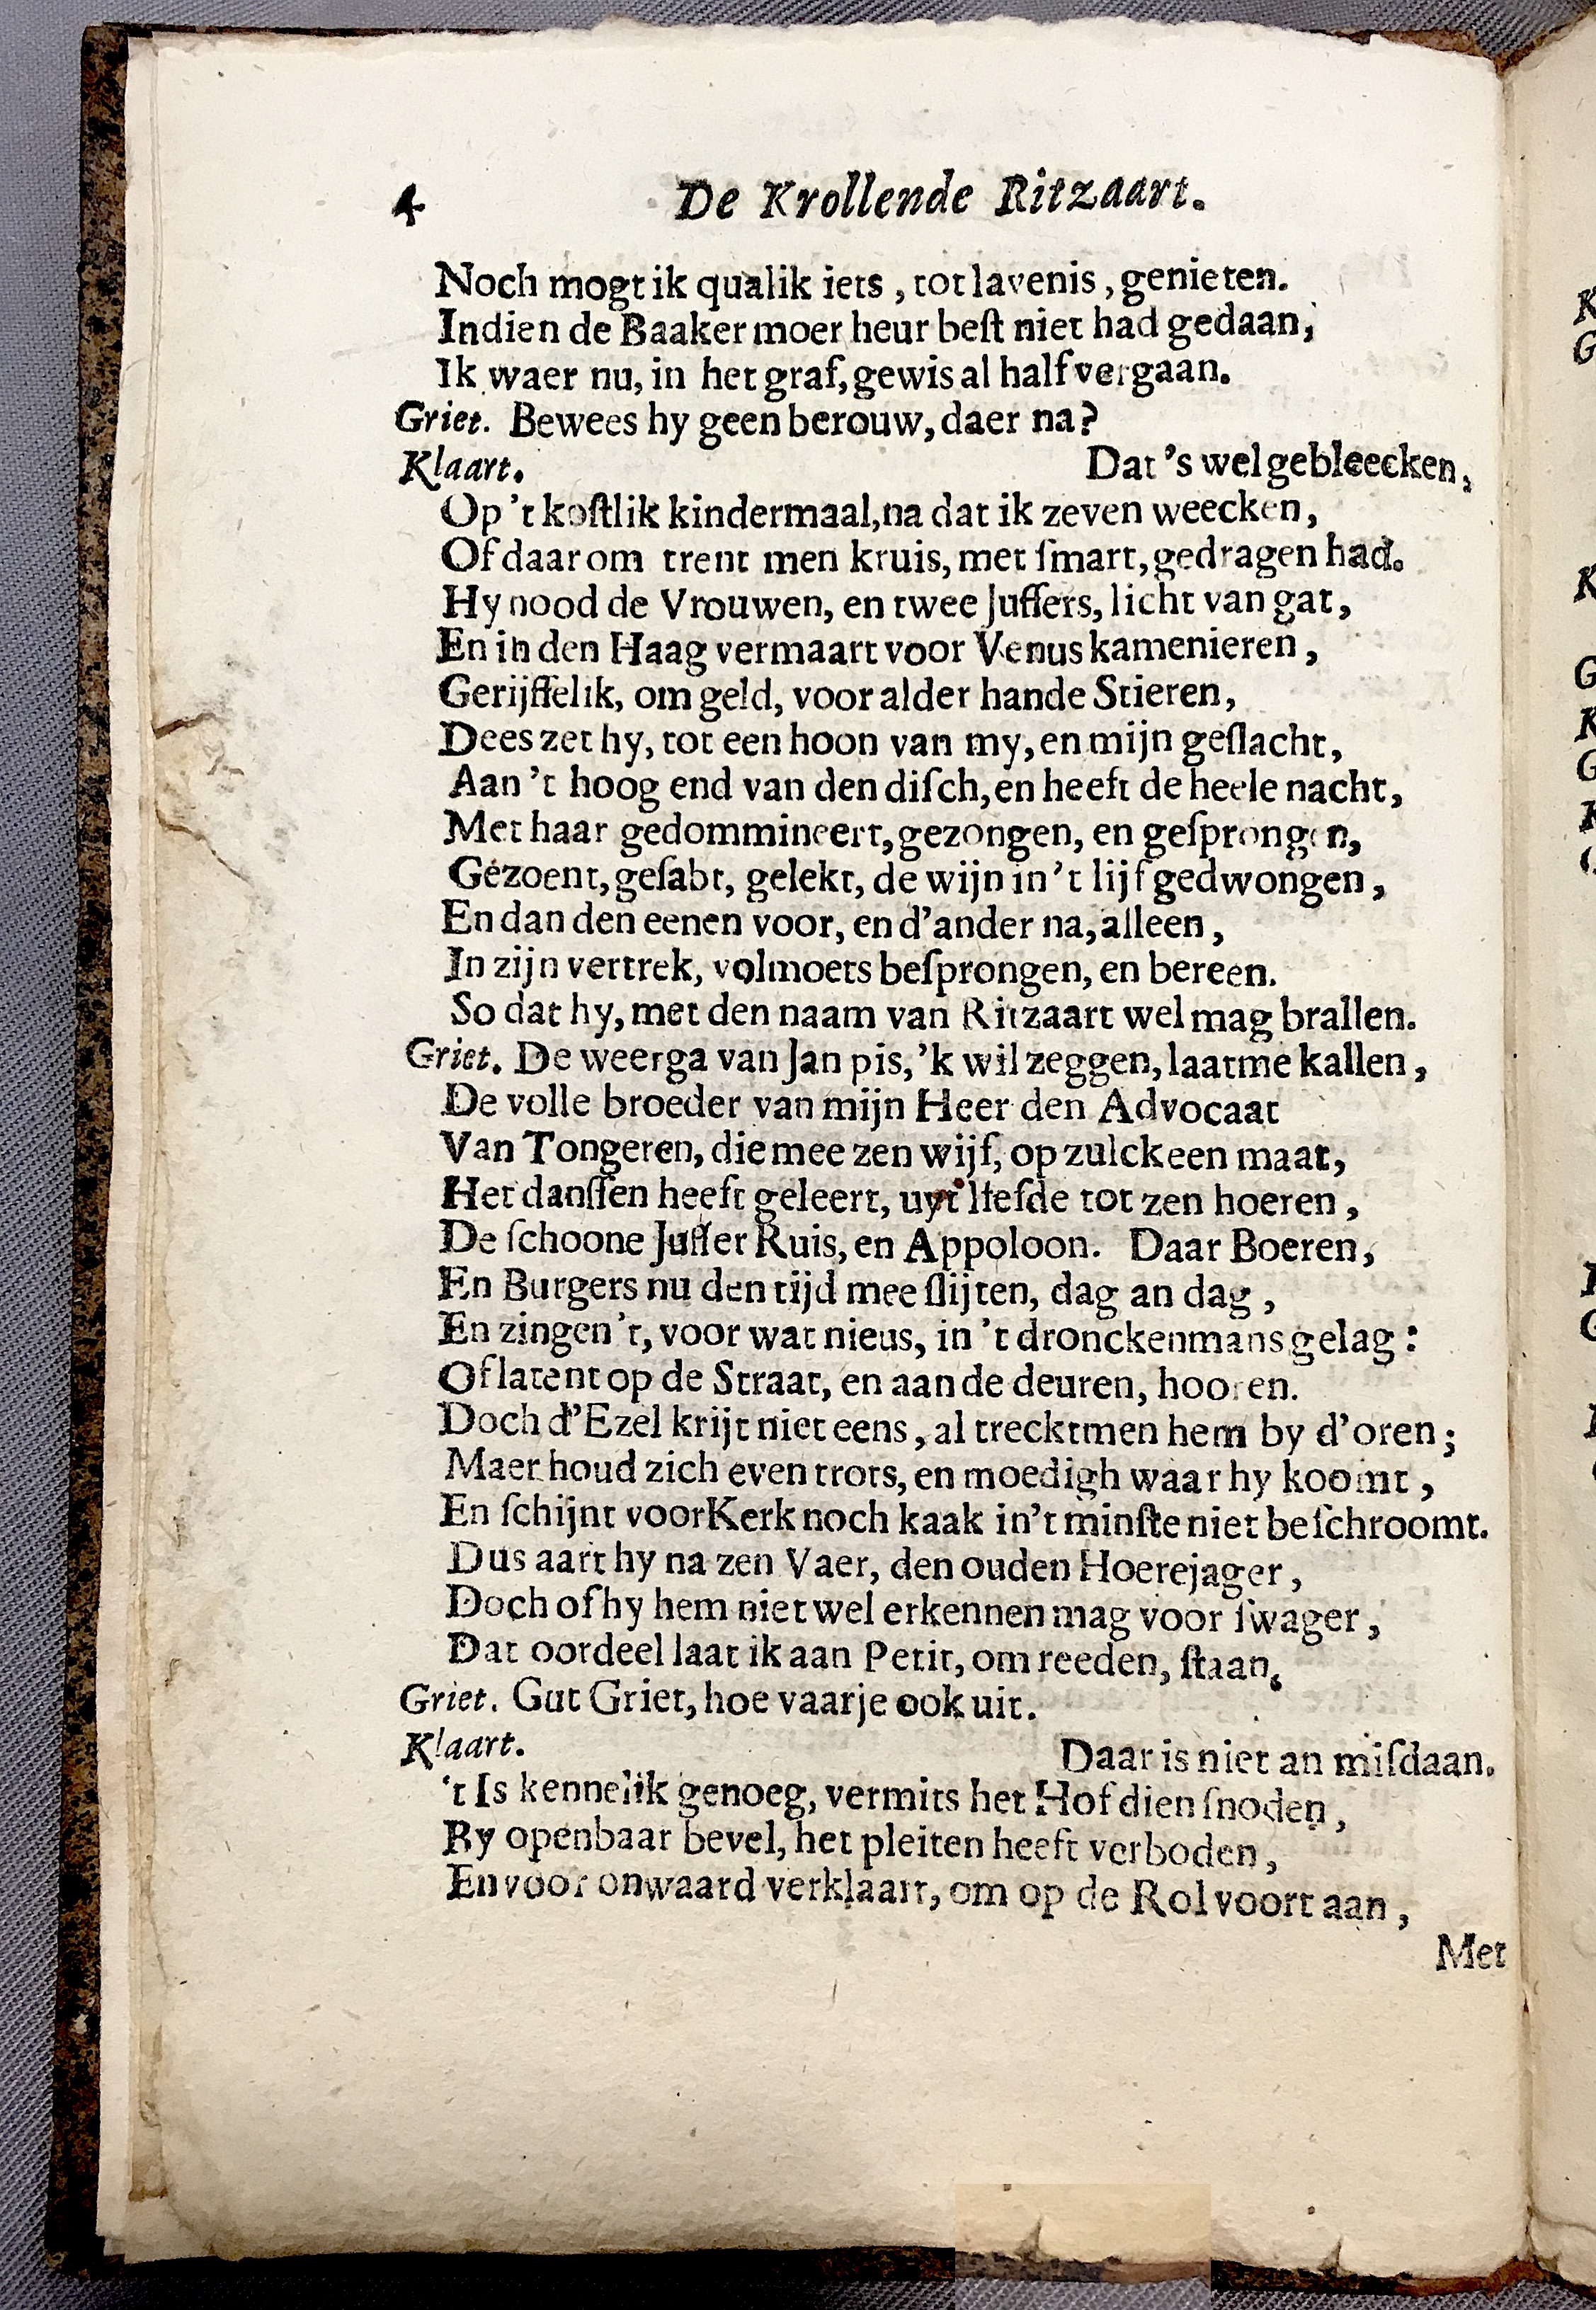 4 De Krollende Ritzaart.
Noch mogt ik qualik iets, tot lavenis, genieten.
Indien de Baaker moer heur beſt niet had gedaan,
Ik waer nu, in het graf, gewis al half vergaan.
Griet. Bewees hy geen berouw, daer na?
Klaart. Dat 's wel gebleecken,
Op 't koſtlik kindermaal, na dat ik zeven weecken,
Of daar om trent men kruis, met ſmart, gedragen had.
Hy nood de Vrouwen, en twee Juffers, licht van gat,
En in den Haag vermaart voor Venus kamenieren,
Gerijffelik, om geld, voor alder hande Stieren,
Dees zet hy, tot een hoon van my, en mijn geſlacht,
Aan 't hoog end van den diſch, en heeft de heele nacht,
Met haar gedommineert, gezongen, en geſprongen,
Gezoent, geſabt, gelekt, de wijn in 't lijf gedwongen,
En dan den eenen voor, en d'ander na, alleen,
In zijn vertrek, volmoets beſprongen, en bereen.
So dat hy, met den naam van Ritzaart wel mag brallen.
Griet. De weerga van Jan pis, 'k wil zeggen, laatme kallen,
De volle broeder van mijn Heer den Advocaat
Van Tongeren, die mee zen wijf, op zulck een maat,
Het danſſen heeft geleert, uyt lieſde tot zen hoeren,
De ſchoone Juffer Ruis, en Appoloon. Daar Boeren,
En Burgers nu den tijd mee ſlijten, dag an dag,
En zingen 't, voor wat nieus, in 't dronckenmans gelag:
Of latent op de Straat, en aan de deuren, hooren.
Doch d'Ezel krijt niet eens, al trecktmen hem by d'oren;
Maer houd zich even trots, en moedigh waar hy koomt,
En ſchijnt voor Kerk noch kaak in 't minſte niet beſchroomt.
Dus aart hy na zen Vaer, den ouden Hoerejager,
Doch of hy hem niet wel erkennen mag voor ſwager,
Dat oordeel laat ik aan Petit, om reeden, ſtaan.
Griet. Gut Griet, hoe vaarje ook uit.
Klaart. Daar is niet an miſdaan.
't Is kennelik genoeg, vermits het Hof dien ſnoden,
By openbaar bevel, het pleiten heeft verboden,
En voor onwaard verklaart, om op de Rol voort aan,
Met